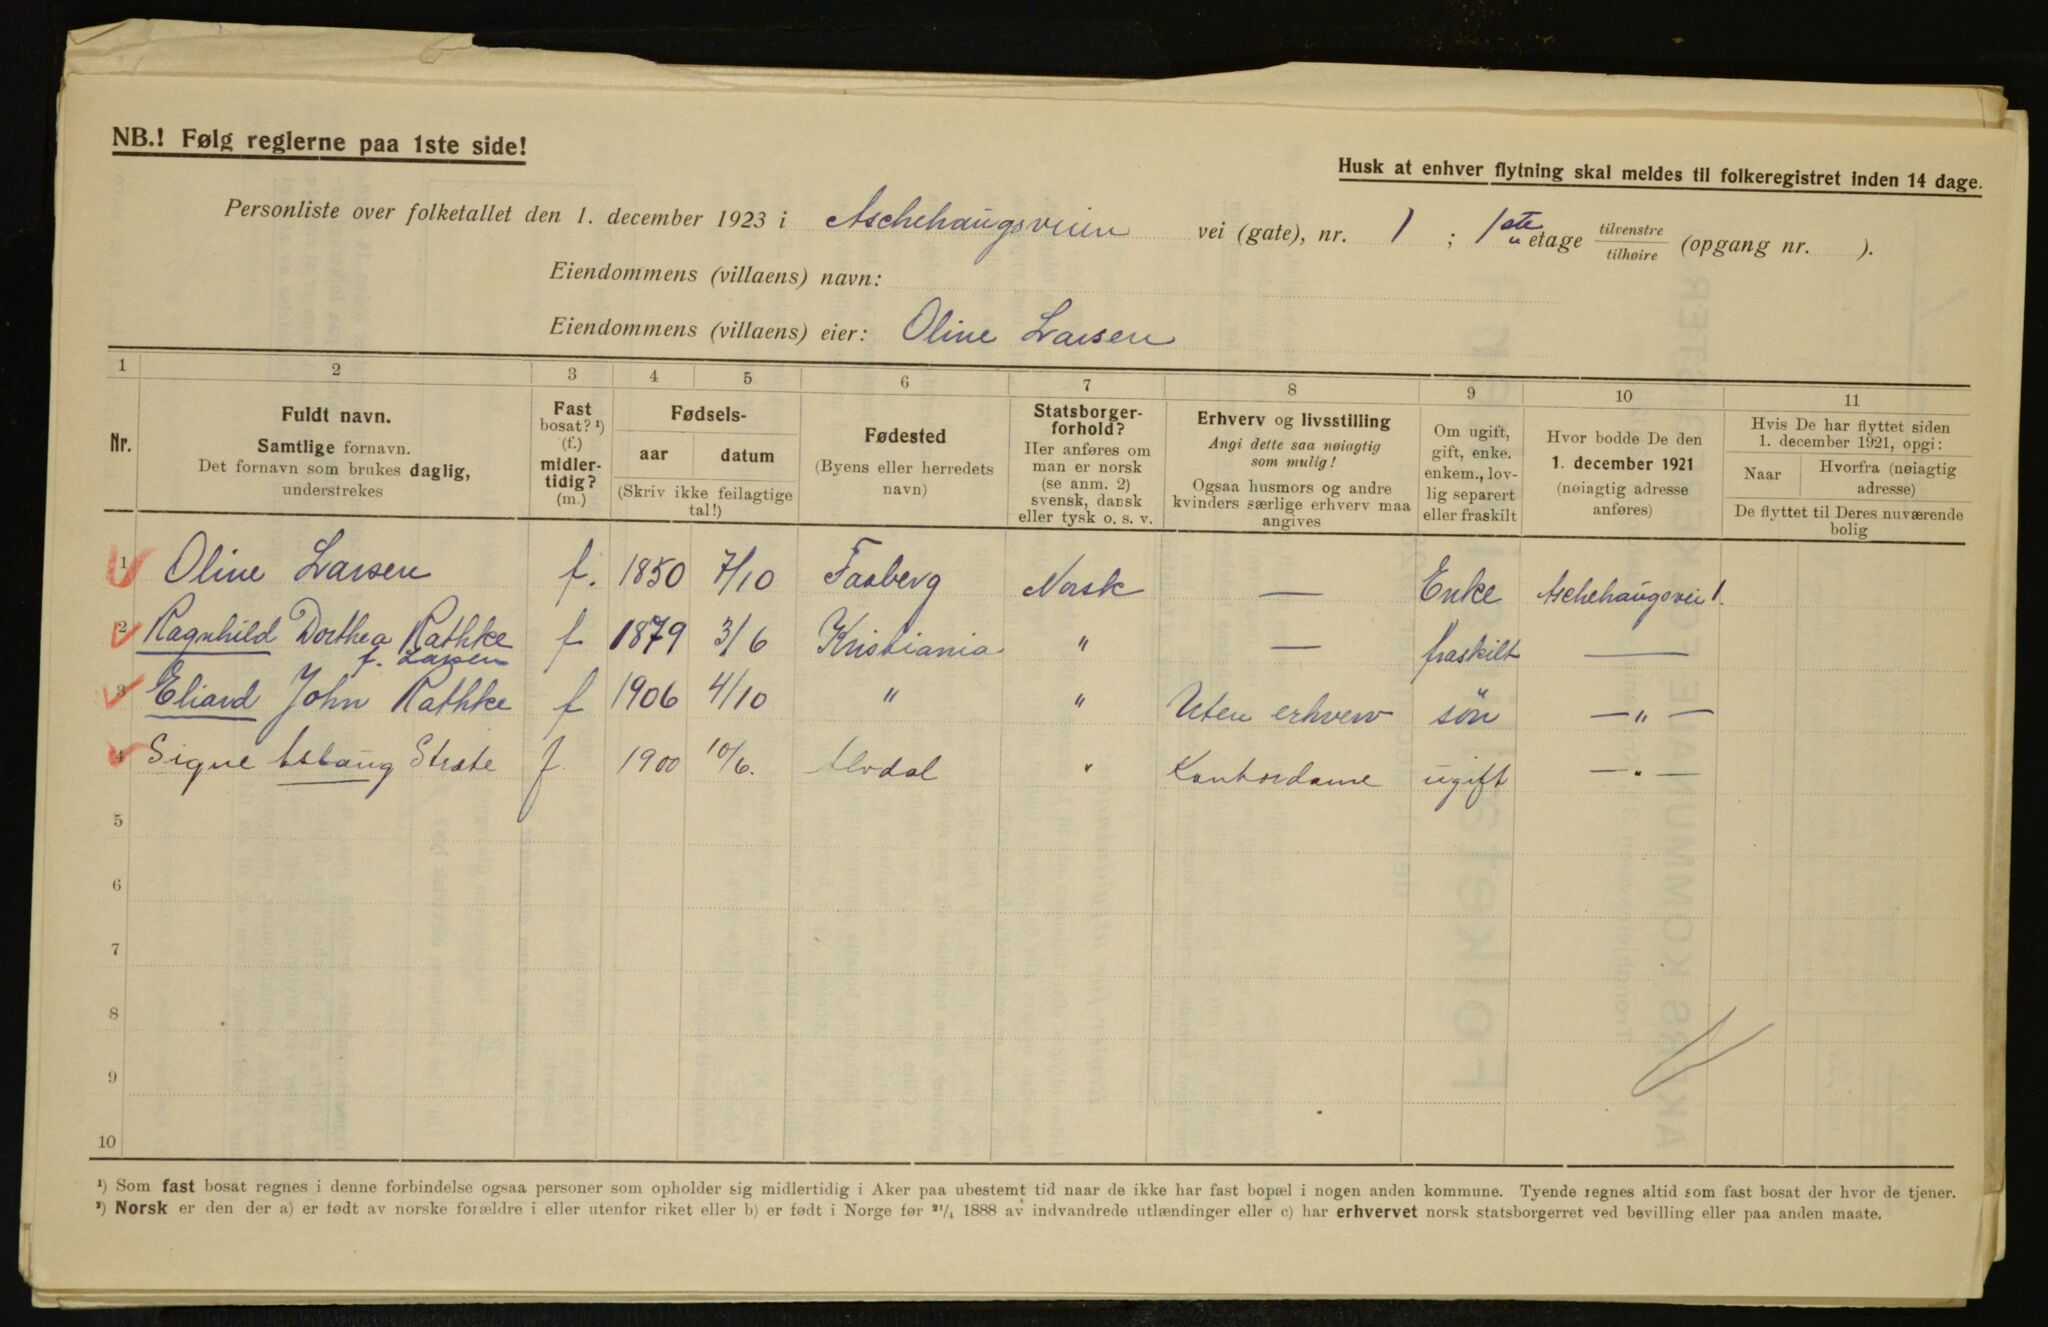 NB.! Følg reglerne paa 1ste side!
Husk at enhver flytning skal meldes til folkeregistret inden 14 dage.
Personliste over folketallet den 1. december 1923 i Aschehaugsveien vei (gate), nr. 1 ; 1ste etage tilvenstre tilhøire (opgang nr. ).
Eiendommens (villaens) navn:
Eiendommens (villaens) eier: Oline Larsen
1 2 3 4 5 6 7 8 9 10 11
Nr.
Fuldt navn.
Samtlige fornavn.
Det fornavn som brukes daglig,
understrekes
Fast
bosat? ¹)
(f.)
midler-
tidig?
(m.)
Fødsels-
aar datum
(Skriv ikke feilagtige
tal!)
Fødested
(Byens eller herredets
navn)
Statsborger-
forhold?
Her anføres om
man er norsk
(se anm. 2)
svensk, dansk
eller tysk o. s. v.
Erhverv og livsstilling
Angi dette saa nøiagtig
som mulig!
Ogsaa husmors og andre
kvinders særlige erhverv maa
angives
Om ugift,
gift, enke.
enkem., lov-
lig separert
eller fraskilt
Hvor bodde De den
1. december 1921
(nøiagtig adresse
anføres)
Hvis De har flyttet siden
1. december 1921, opgi:
Naar
Hvorfra (nøiagtig
adresse)
De flyttet til Deres nuværende
bolig
1 Oline Larsen f. 1850 7/10 Faaberg Norsk — Enke Aschehaugsvei 1.
2 Ragnhild Dorthea Rathke f 1879 3/6 Kristiania " — fraskilt —
f. Larsen
3 Eliard John Rathke f 1906 4/10 " " Uten erhverv sön — " —
4 Signe Aslaug Strøte f. 1900 10/6. Alvdal " Kontordame ugift — " —
5
6
7
8
9
10
¹) Som fast bosat regnes i denne forbindelse ogsaa personer som opholder sig midlertidig i Aker paa ubestemt tid naar de ikke har fast bopæl i nogen anden kommune. Tyende regnes altid som fast bosat der hvor de tjener.
²) Norsk er den der a) er født av norske forældre i eller utenfor riket eller b) er født i Norge før ²¹/₄ 1888 av indvandrede utlændinger eller c) har erhvervet norsk statsborgerret ved bevilling eller paa anden maate.